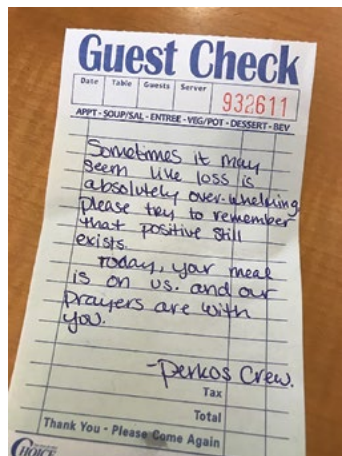 Guest Check
Date Table Guests Server
932611
APPT - SOUP/SAL - ENTREE - VEG/POT - DESSERT - BEV
Sometimes it may
seem like loss is
absolutely over-whelming
please try to remember
that positive still
exists.
Today, your meal
is on us. and our
prayers are with
you.
-Perkos Crew.
Tax
Total
Thank You - Please Come Again
CHOICE